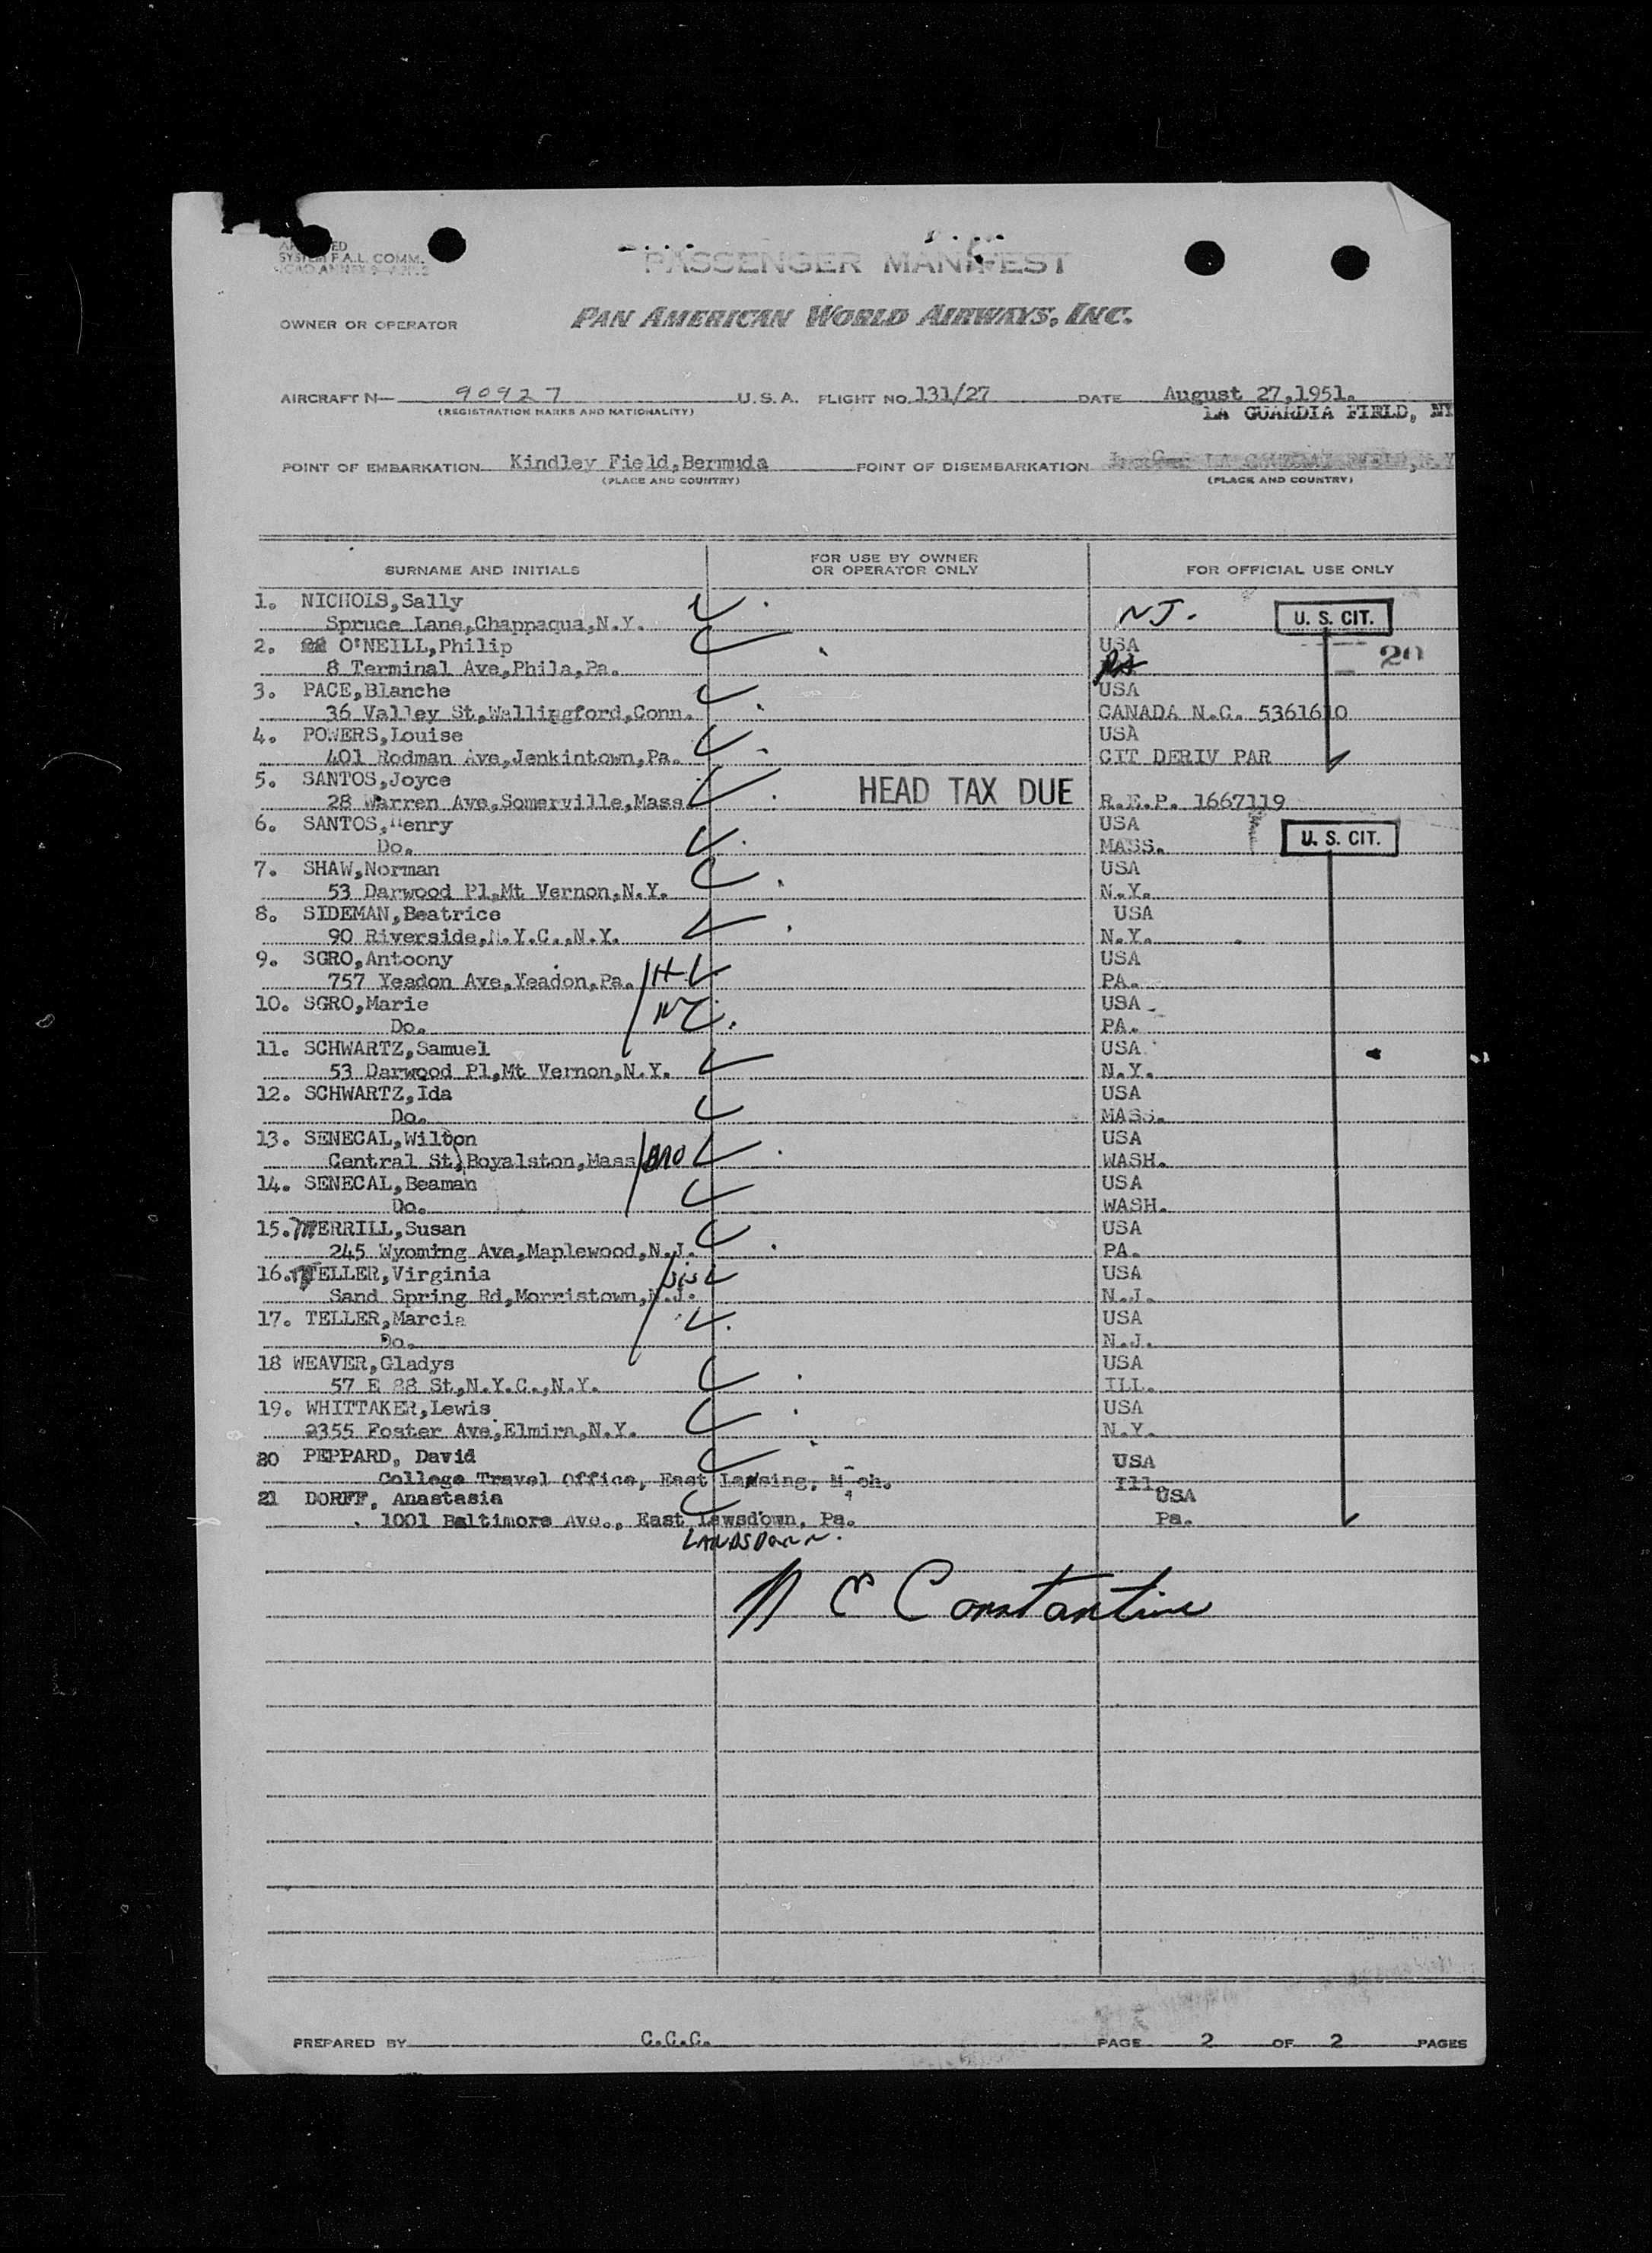 SYSTEM F.A.L. COMM.
PASSENGER MANIFEST
OWNER OR OPERATOR PAN AMERICAN WORLD AIRWAYS, INC.
AIRCRAFT N— 90927 U.S.A. FLIGHT NO. 131/27 DATE August 27,1951.
(REGISTRATION MARKS AND NATIONALITY) LA GUARDIA FIELD, NY
POINT OF EMBARKATION Kindley Field,Bermuda POINT OF DISEMBARKATION
(PLACE AND COUNTRY) (PLACE AND COUNTRY)
SURNAME AND INITIALS FOR USE BY OWNER OR OPERATOR ONLY FOR OFFICIAL USE ONLY
1. NICHOLS,Sally
Spruce Lane,Chappaqua,N.Y. NJ. U. S. CIT.
2. O'NEILL,Philip USA
8 Terminal Ave,Phila,Pa. PA 20
3. PACE,Blanche USA
36 Valley St,Wallingford,Conn. CANADA N.C. 5361610
4. POWERS,Louise USA
401 Rodman Ave,Jenkintown,Pa. CIT DERIV PAR
5. SANTOS,Joyce HEAD TAX DUE
28 Warren Ave,Somerville,Mass R.E.P. 1667119
6. SANTOS,Henry USA
Do. MASS. U. S. CIT.
7. SHAW,Norman USA
53 Darwood Pl,Mt Vernon,N.Y. N.Y.
8. SIDEMAN,Beatrice USA
90 Riverside,N.Y.C.,N.Y. N.Y.
9. SGRO,Antoony USA
757 Yeadon Ave,Yeadon,Pa. H PA.
10. SGRO,Marie USA
Do. W PA.
11. SCHWARTZ,Samuel USA
53 Darwood Pl,Mt Vernon,N.Y. N.Y.
12. SCHWARTZ,Ida USA
Do. MASS.
13. SENECAL,Wilton USA
Central St,Boyalston,Mass BRO WASH.
14. SENECAL,Beaman USA
Do. WASH.
15. MERRILL,Susan USA
245 Wyoming Ave,Maplewood,N.J. PA.
16. TELLER,Virginia USA
Sand Spring Rd,Morristown,N.J. SIS N.J.
17. TELLER,Marcia USA
Do. N.J.
18 WEAVER,Gladys USA
57 E 88 St,N.Y.C.,N.Y. ILL.
19. WHITTAKER,Lewis USA
2355 Foster Ave,Elmira,N.Y. N.Y.
20 PEPPARD, David USA
College Travel Office, East Lansing, Mich. Ill.
21 DORFF, Anastasia USA
1001 Baltimore Ave., East Lawsdown, Pa. Pa.
LANDSDOWN.
N E Constantine
PREPARED BY C.C.C. PAGE 2 OF 2 PAGES